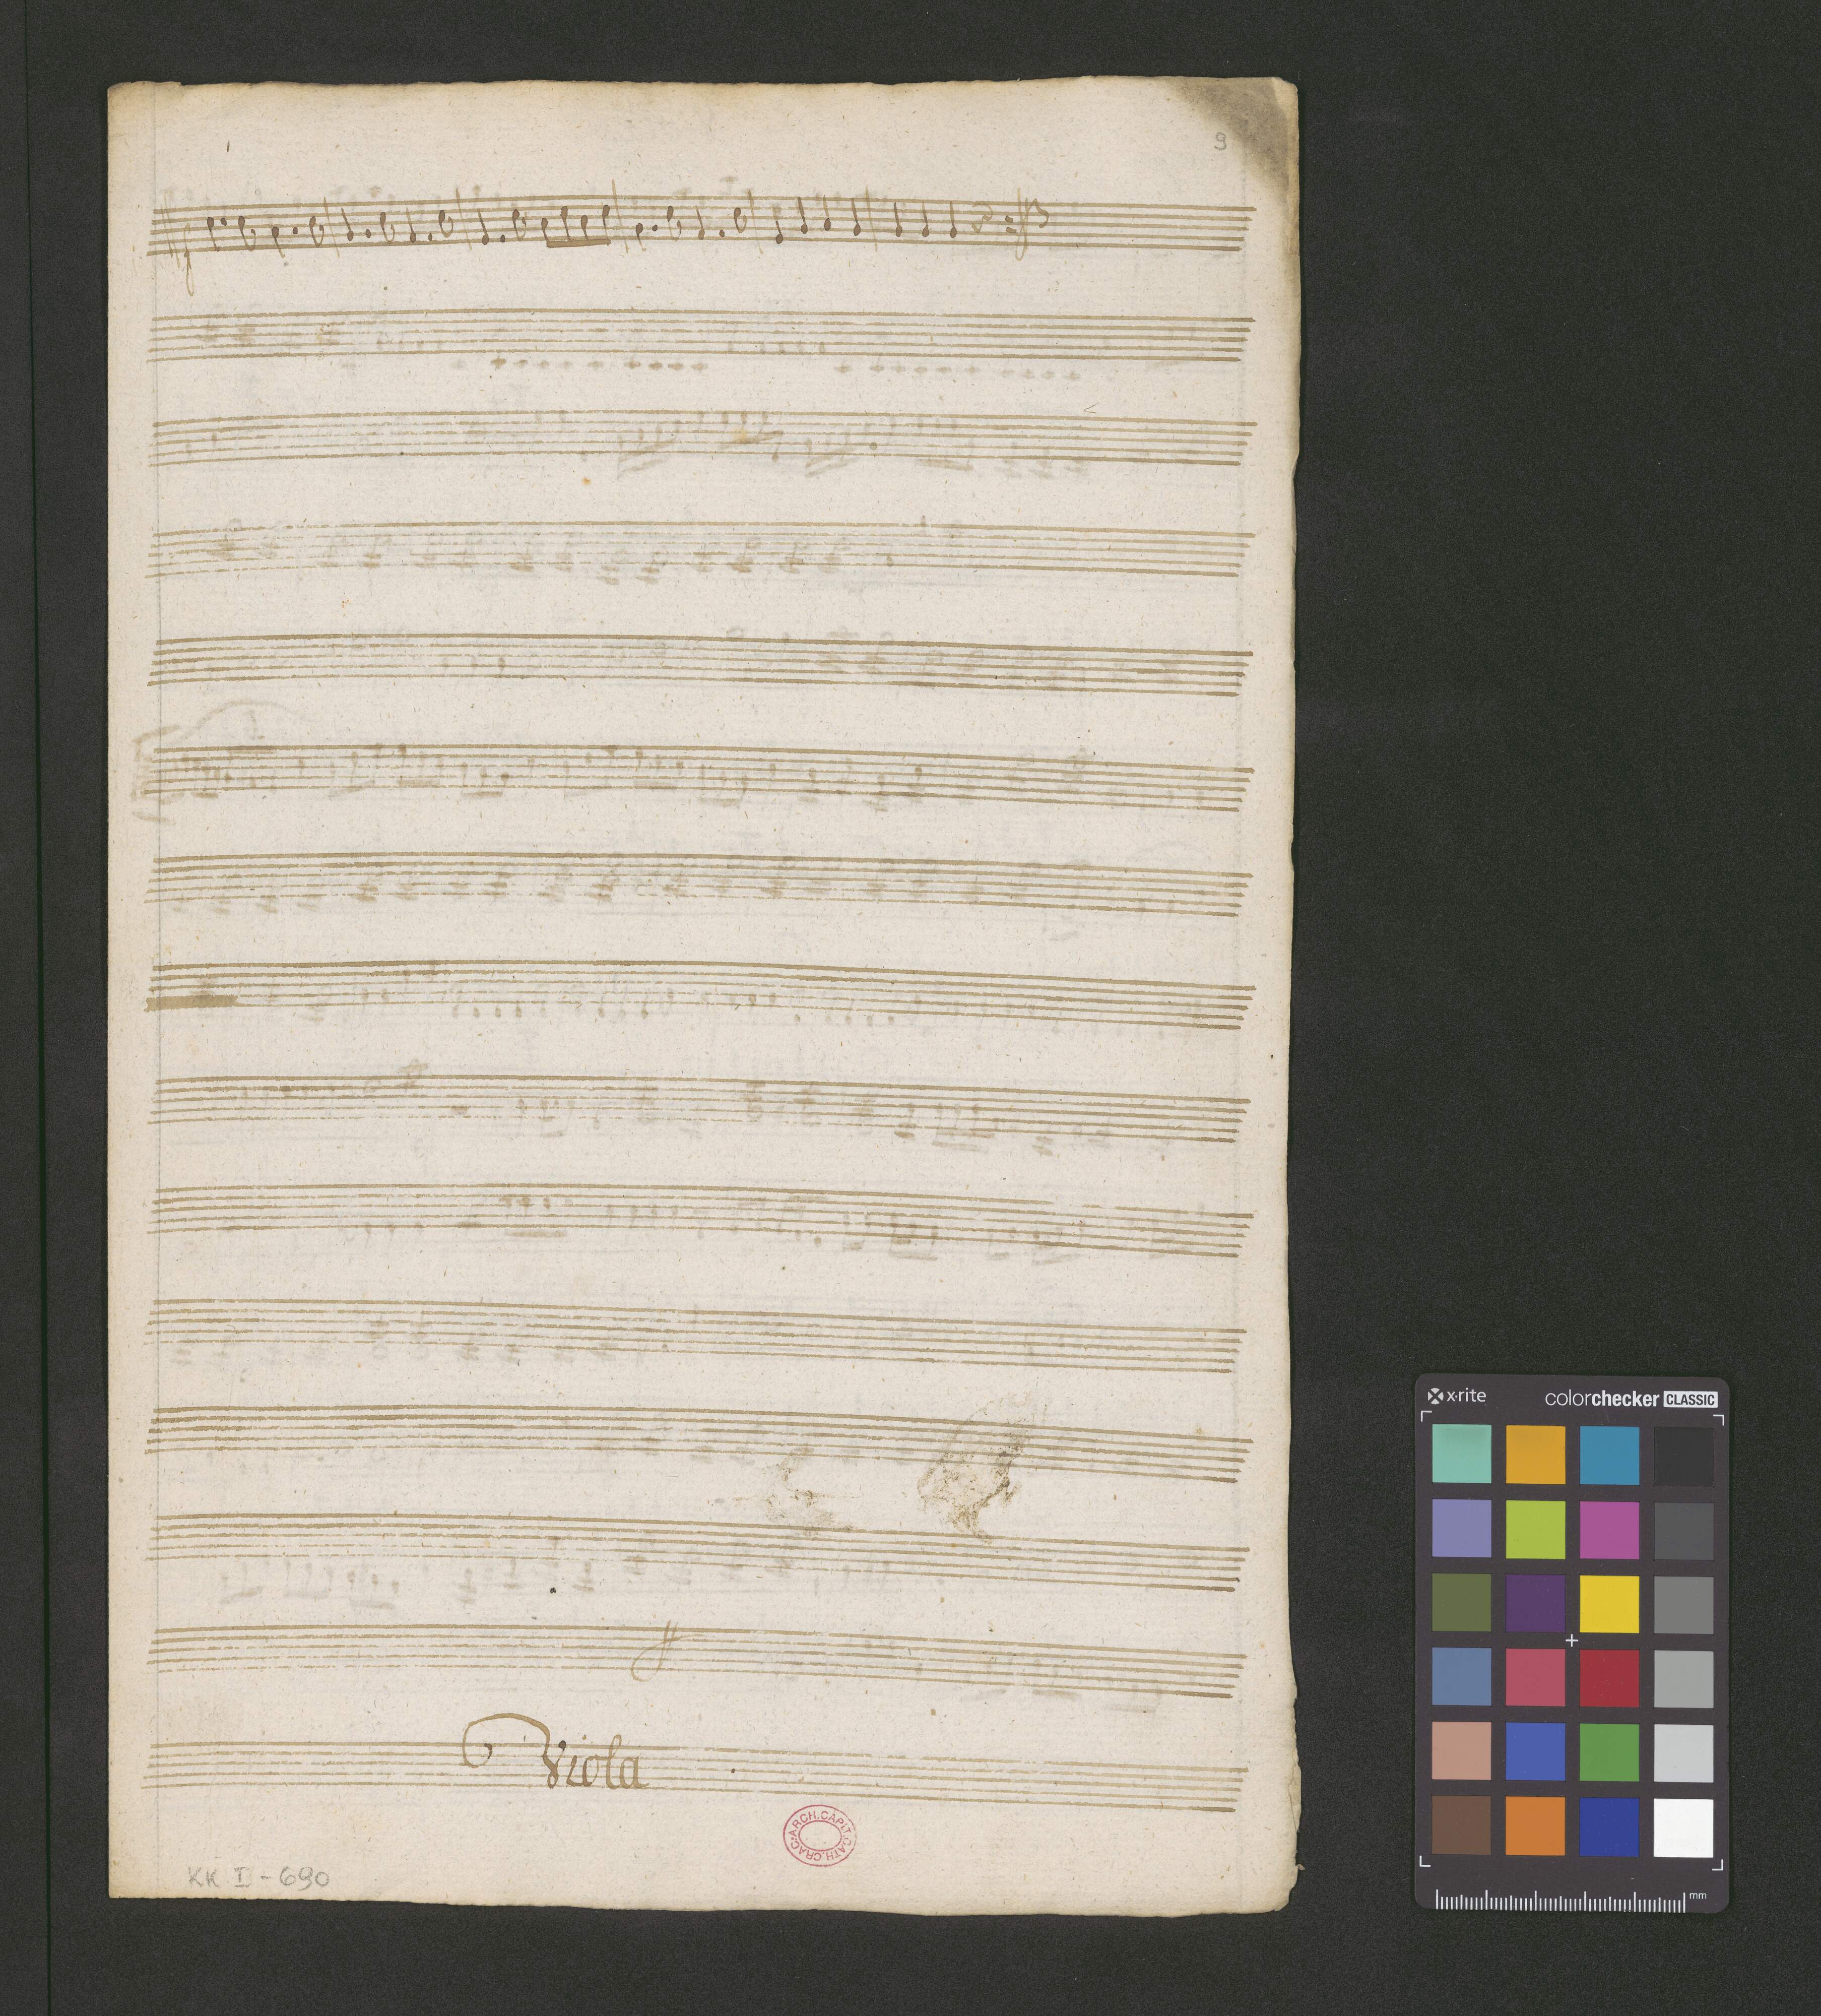 9
Viola
ARCH.CAPIT.CATH.CRAC
KK I - 690
x·rite colorchecker CLASSIC
mm